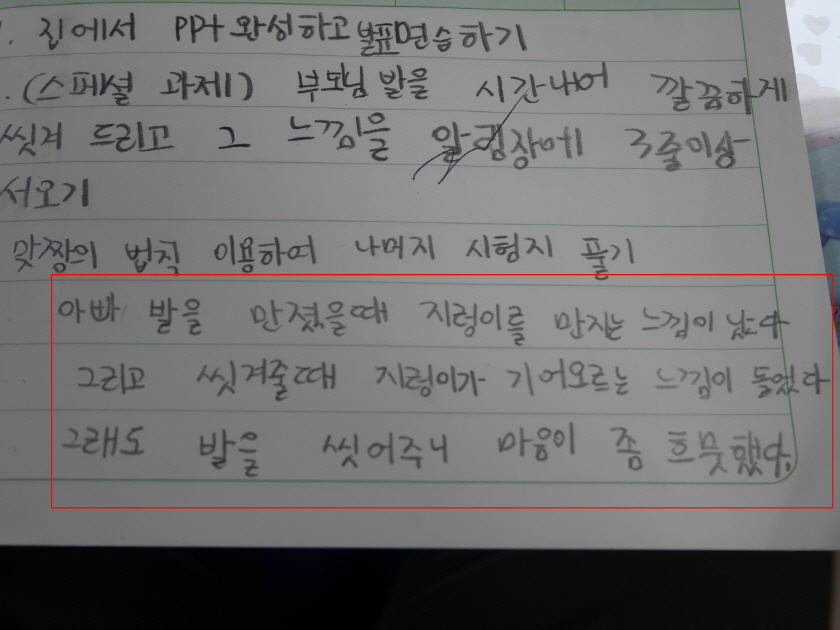 . 집에서 PPt 완성하고 발표연습하기
. (스페셜 과제1) 부모님 발을 시간내어 깔끔하게
씻겨 드리고 그 느낌을 알림장에 3줄이상
써오기
맞짱의 법칙 이용하여 나머지 시험지 풀기
아빠 발을 만졌을때 지렁이를 만지는 느낌이 났다
그리고 씻겨줄때 지렁이가 기어오르는 느낌이 들었다
그래도 발을 씻어주니 마음이 좀 흐뭇했다.